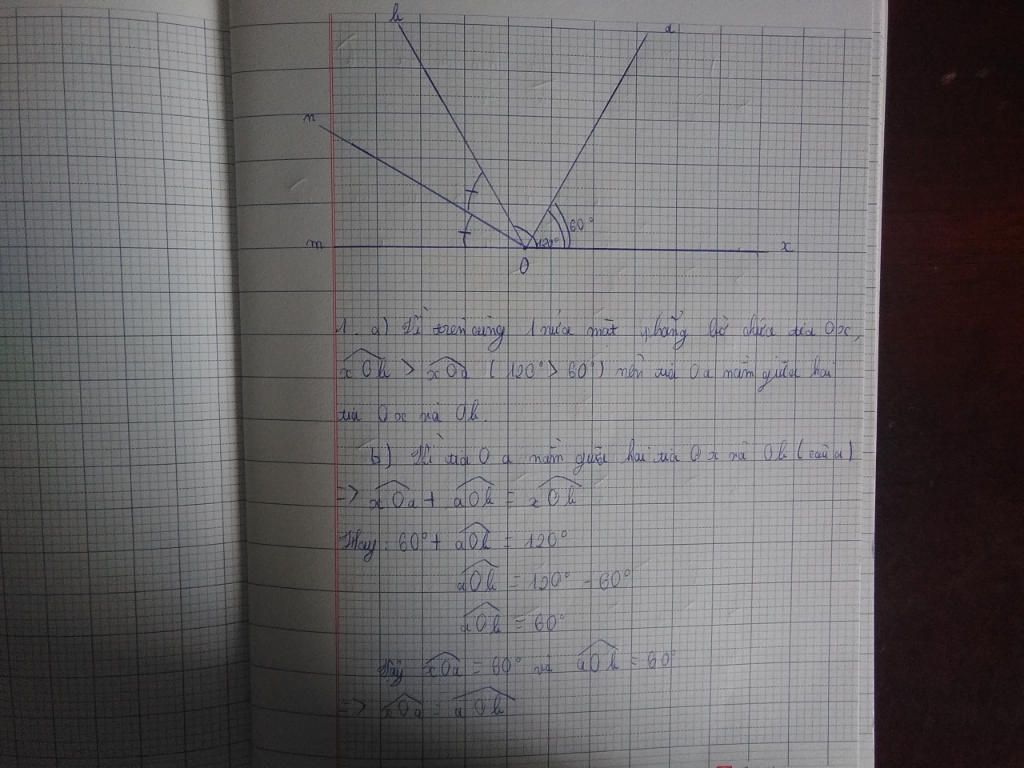 b
a
n
60°
m
120°
x
O
1. a) Vì trên cùng 1 nửa mặt phẳng bờ chứa tia Ox,
xOb > xOa (120° > 60°) nên tia Oa nằm giữa hai
tia Ox và Ob.
b) Vì tia Oa nằm giữa hai tia Ox và Ob (câu a)
=> xOa + aOb = xOb
Hay: 60° + aOb = 120°
aOb = 120° - 60°
aOb = 60°
Vậy xOa = 60° và aOb = 60°
=> xOa = aOb